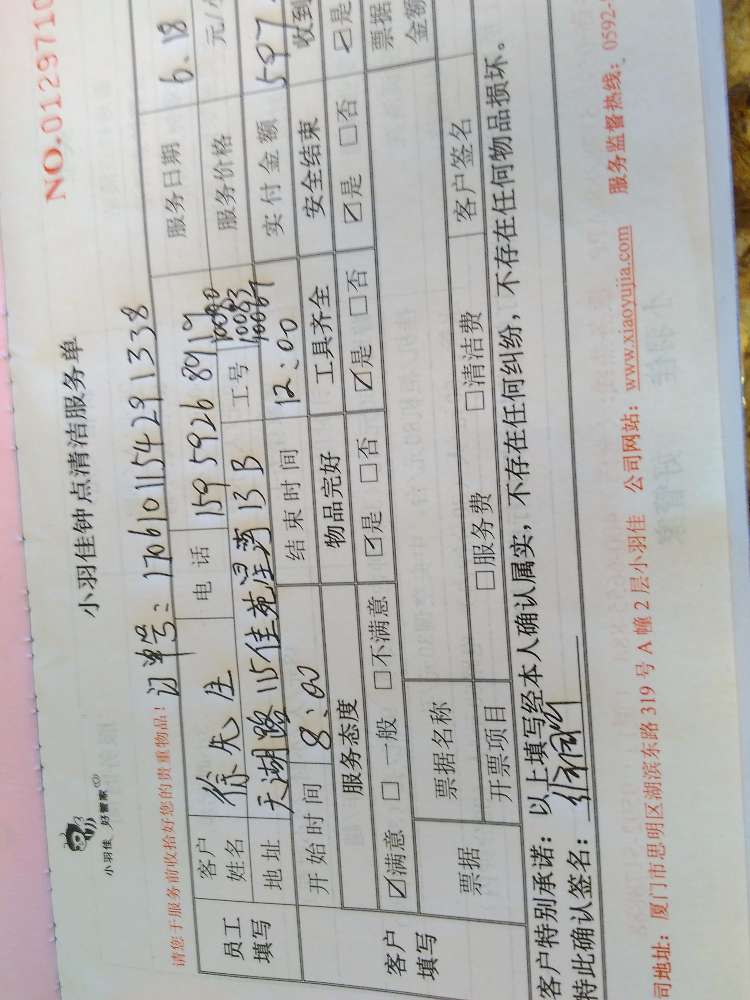 小羽佳 好管家
小羽佳钟点清洁服务单
NO.0129710
请您于服务前收拾好您的贵重物品！
订单号：170610115429 1338
员工填写
客户姓名 徐先生 电话 159 5926 8919 服务日期 6.18
地址 天湖路115佳苑星荷13B 工号 10080 10083 10067 服务价格 元/
开始时间 8:00 结束时间 12:00 实付金额 597
客户填写
服务态度 物品完好 工具齐全 安全结束 收到
☑满意 □一般 □不满意 ☑是 □否 ☑是 □否 ☑是 □否 ☑是
票据 票据名称 票据金额
开票项目 □服务费 □清洁费 客户签名
客户特别承诺：以上填写经本人确认属实，不存在任何纠纷，不存在任何物品损坏。
特此确认签名：
司地址：厦门市思明区湖滨东路319号A幢2层小羽佳 公司网站：www.xiaoyujia.com 服务监督热线：0592-